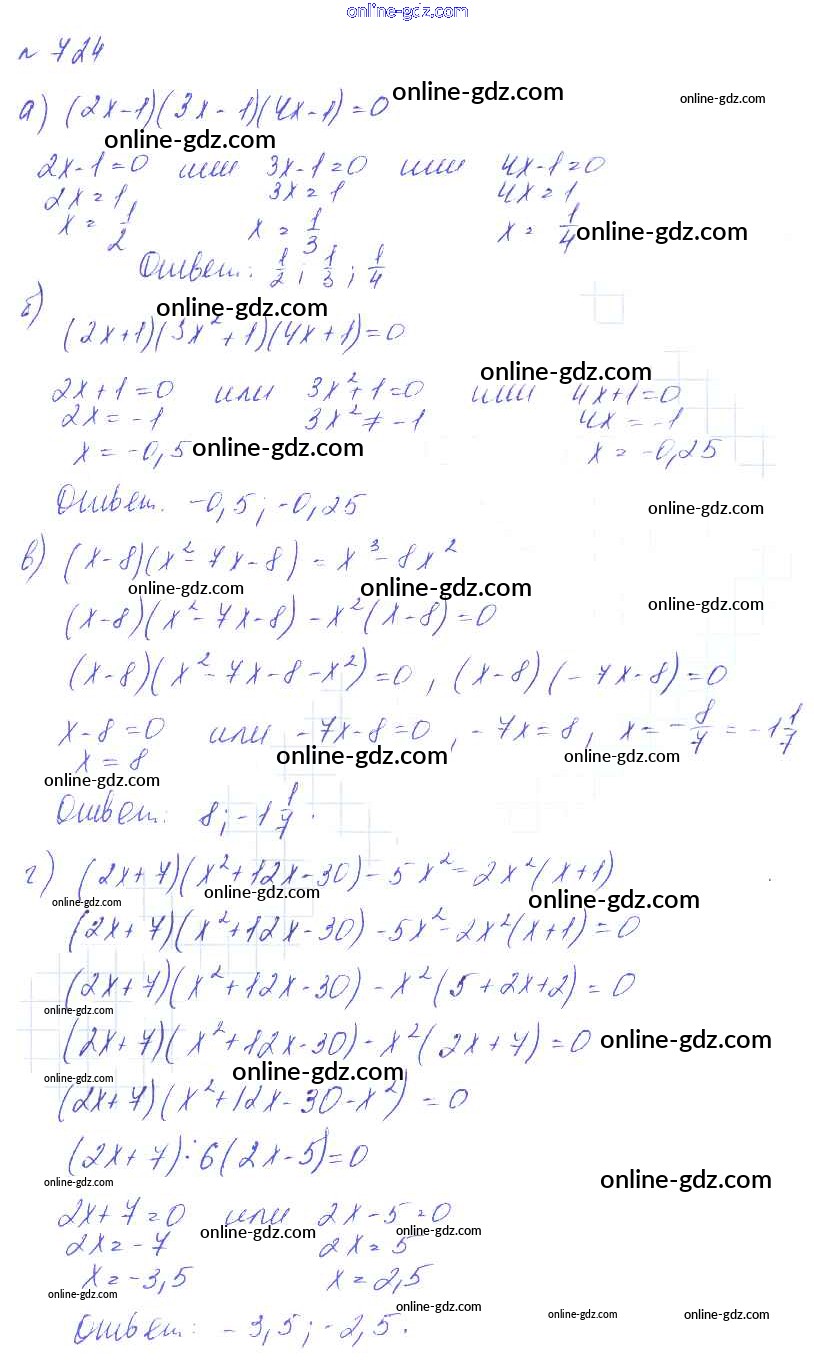 online-gdz.com
№ 724
а) (2x-1)(3x-1)(4x-1)=0 online-gdz.com online-gdz.com
online-gdz.com
2x-1=0 или 3x-1=0 или 4x-1=0
2x=1, 3x=1 4x=1
x=1/2 x=1/3 x=1/4 online-gdz.com
Ответ: 1/2; 1/3; 1/4
б) online-gdz.com
(2x+1)(3x²+1)(4x+1)=0
online-gdz.com
2x+1=0 или 3x²+1=0 или 4x+1=0
2x=-1 3x²≠-1 4x=-1
x=-0,5 online-gdz.com x=-0,25
Ответ. -0,5; -0,25 online-gdz.com
в) (x-8)(x²-7x-8)=x³-8x²
online-gdz.com online-gdz.com online-gdz.com
(x-8)(x²-7x-8)-x²(x-8)=0
(x-8)(x²-7x-8-x²)=0, (x-8)(-7x-8)=0
x-8=0 или -7x-8=0, -7x=8, x=-8/7=-1 1/7
x=8 online-gdz.com online-gdz.com
online-gdz.com
Ответ: 8; -1 1/7.
г) (2x+7)(x²+12x-30)-5x²=2x²(x+1)
online-gdz.com online-gdz.com online-gdz.com
(2x+7)(x²+12x-30)-5x²-2x²(x+1)=0
(2x+7)(x²+12x-30)-x²(5+2x+2)=0
online-gdz.com
(2x+7)(x²+12x-30)-x²(2x+7)=0 online-gdz.com
online-gdz.com online-gdz.com
(2x+7)(x²+12x-30-x²)=0
(2x+7)·6(2x-5)=0
online-gdz.com online-gdz.com
2x+7=0 или 2x-5=0
online-gdz.com online-gdz.com
2x=-7 2x=5
x=-3,5 x=2,5
online-gdz.com online-gdz.com online-gdz.com online-gdz.com
Ответ: -3,5; -2,5.